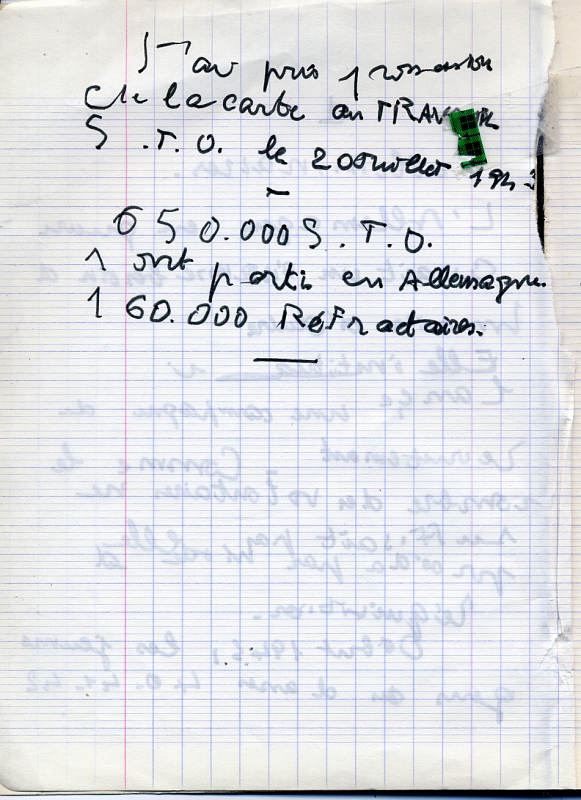 J'ai pris possession
de la carte au TRAVAIL
S.T.O. le 20 Juillet 1943
650.000 S.T.O.
ont parti en Allemagne.
160.000 RéFractaires.